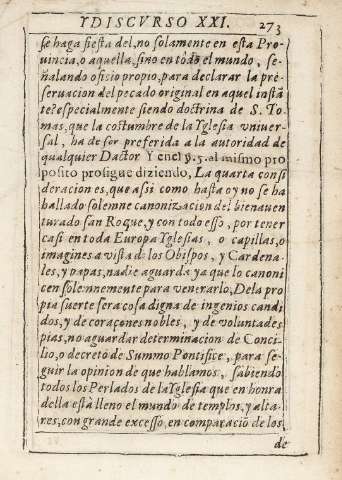 YDISCVRSO XXI. 273
se haga fiesta del, no solamente en esta Pro-
uincia, o aquella, sino en todo el mundo, se-
ñalando ofisio propio, para declarar la pre-
seruacion del pecado original en aquel instã
te? especialmente siendo doctrina de S. To-
mas, que la costumbre de la Yglesia vniuer-
sal, ha de ser preferida a la autoridad de
qualquier Dactor Y enel p. 5. al mismo pro
posito prosigue diziendo, La quarta consi
deracion es, que assi como hasta oy no se ha
hallado solemne canonizacion del bienauen
turado san Roque, y con todo esso, por tener
casi en toda Europa Yglesias, o capillas, o
imagines a vista de los Obispos, y Cardena-
les, y papas, nadie aguarda ya que lo canoni
cen solemnemente para venerarlo, Dela pro
pia suerte sera cosa digna de ingenios candi
dos, y de coraçones nobles, y de voluntades
pias, no aguardar determinacion de Conci-
lio, o decreto de Summo Pontifice, para se-
guir la opinion de que hablamos, sabiendo
todos los Perlados de la Yglesia que en honra
della està lleno el mundo de templos, y alta-
res, con grande excesso, en comparaciõ de los
de